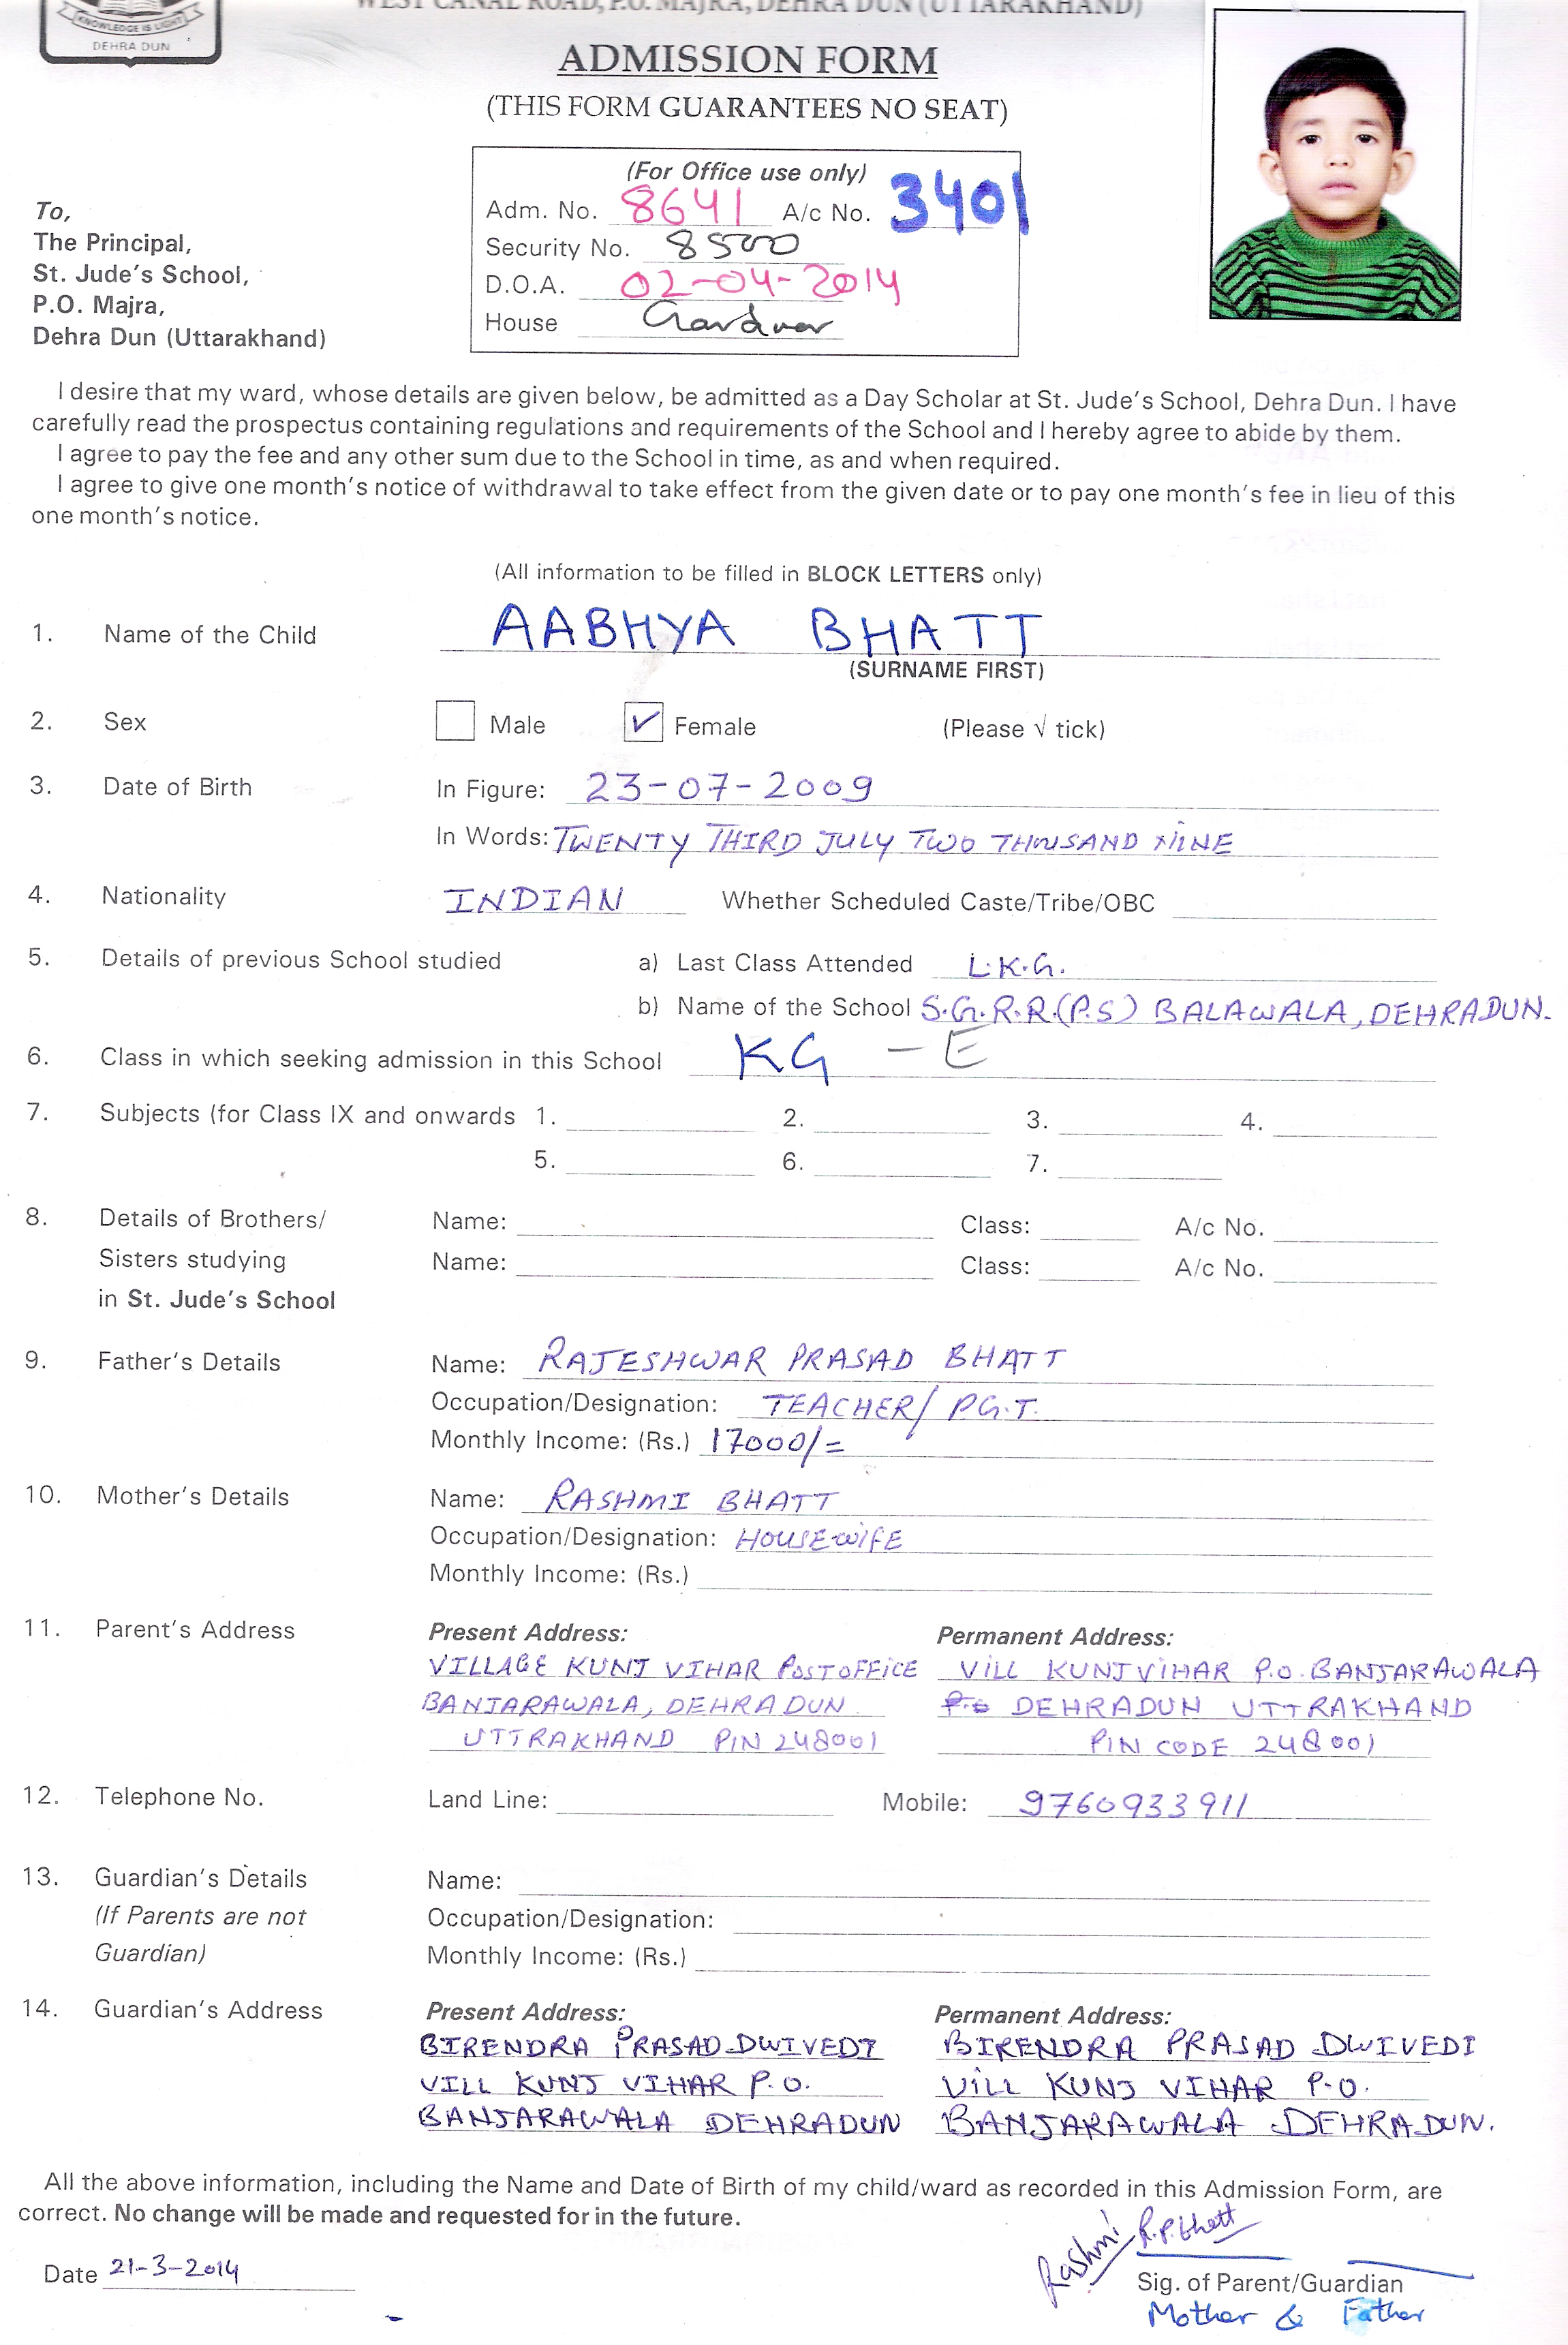 WEST CANAL ROAD, P.O. MAJRA, DEHRA DUN (UTTARAKHAND)
KNOWLEDGE IS LIGHT
DEHRA DUN
ADMISSION FORM
(THIS FORM GUARANTEES NO SEAT)
(For Office use only)
Adm. No. 8641 A/c No. 3401
Security No. 8500
D.O.A. 02-04-2014
House Gardner
To,
The Principal,
St. Jude's School,
P.O. Majra,
Dehra Dun (Uttarakhand)
I desire that my ward, whose details are given below, be admitted as a Day Scholar at St. Jude's School, Dehra Dun. I have
carefully read the prospectus containing regulations and requirements of the School and I hereby agree to abide by them.
I agree to pay the fee and any other sum due to the School in time, as and when required.
I agree to give one month's notice of withdrawal to take effect from the given date or to pay one month's fee in lieu of this
one month's notice.
(All information to be filled in BLOCK LETTERS only)
1. Name of the Child AABHYA BHATT
(SURNAME FIRST)
2. Sex Male ✓ Female (Please √ tick)
3. Date of Birth In Figure: 23-07-2009
In Words: TWENTY THIRD JULY TWO THOUSAND NINE
4. Nationality INDIAN Whether Scheduled Caste/Tribe/OBC
5. Details of previous School studied a) Last Class Attended L.K.G.
b) Name of the School S.G.R.R.(P.S) BALAWALA, DEHRADUN.
6. Class in which seeking admission in this School KG - E
7. Subjects (for Class IX and onwards 1. 2. 3. 4.
5. 6. 7.
8. Details of Brothers/ Name: Class: A/c No.
Sisters studying Name: Class: A/c No.
in St. Jude's School
9. Father's Details Name: RAJESHWAR PRASAD BHATT
Occupation/Designation: TEACHER/ P.G.T.
Monthly Income: (Rs.) 17000/=
10. Mother's Details Name: RASHMI BHATT
Occupation/Designation: HOUSE-WIFE
Monthly Income: (Rs.)
11. Parent's Address Present Address: Permanent Address:
VILLAGE KUNJ VIHAR POST OFFICE VILL KUNJ VIHAR P.O. BANJARAWALA
BANJARAWALA, DEHRADUN P.O DEHRADUN UTTRAKHAND
UTTRAKHAND PIN 248001 PIN CODE 248001
12. Telephone No. Land Line: Mobile: 9760933911
13. Guardian's Details Name:
(If Parents are not Occupation/Designation:
Guardian) Monthly Income: (Rs.)
14. Guardian's Address Present Address: Permanent Address:
BIRENDRA PRASAD DWIVEDI BIRENDRA PRASAD DWIVEDI
VILL KUNJ VIHAR P.O. VILL KUNJ VIHAR P.O.
BANJARAWALA DEHRADUN BANJARAWALA DEHRADUN.
All the above information, including the Name and Date of Birth of my child/ward as recorded in this Admission Form, are
correct. No change will be made and requested for in the future.
Rashmi R.P.Bhatt
Date 21-3-2014
Sig. of Parent/Guardian
Mother & Father